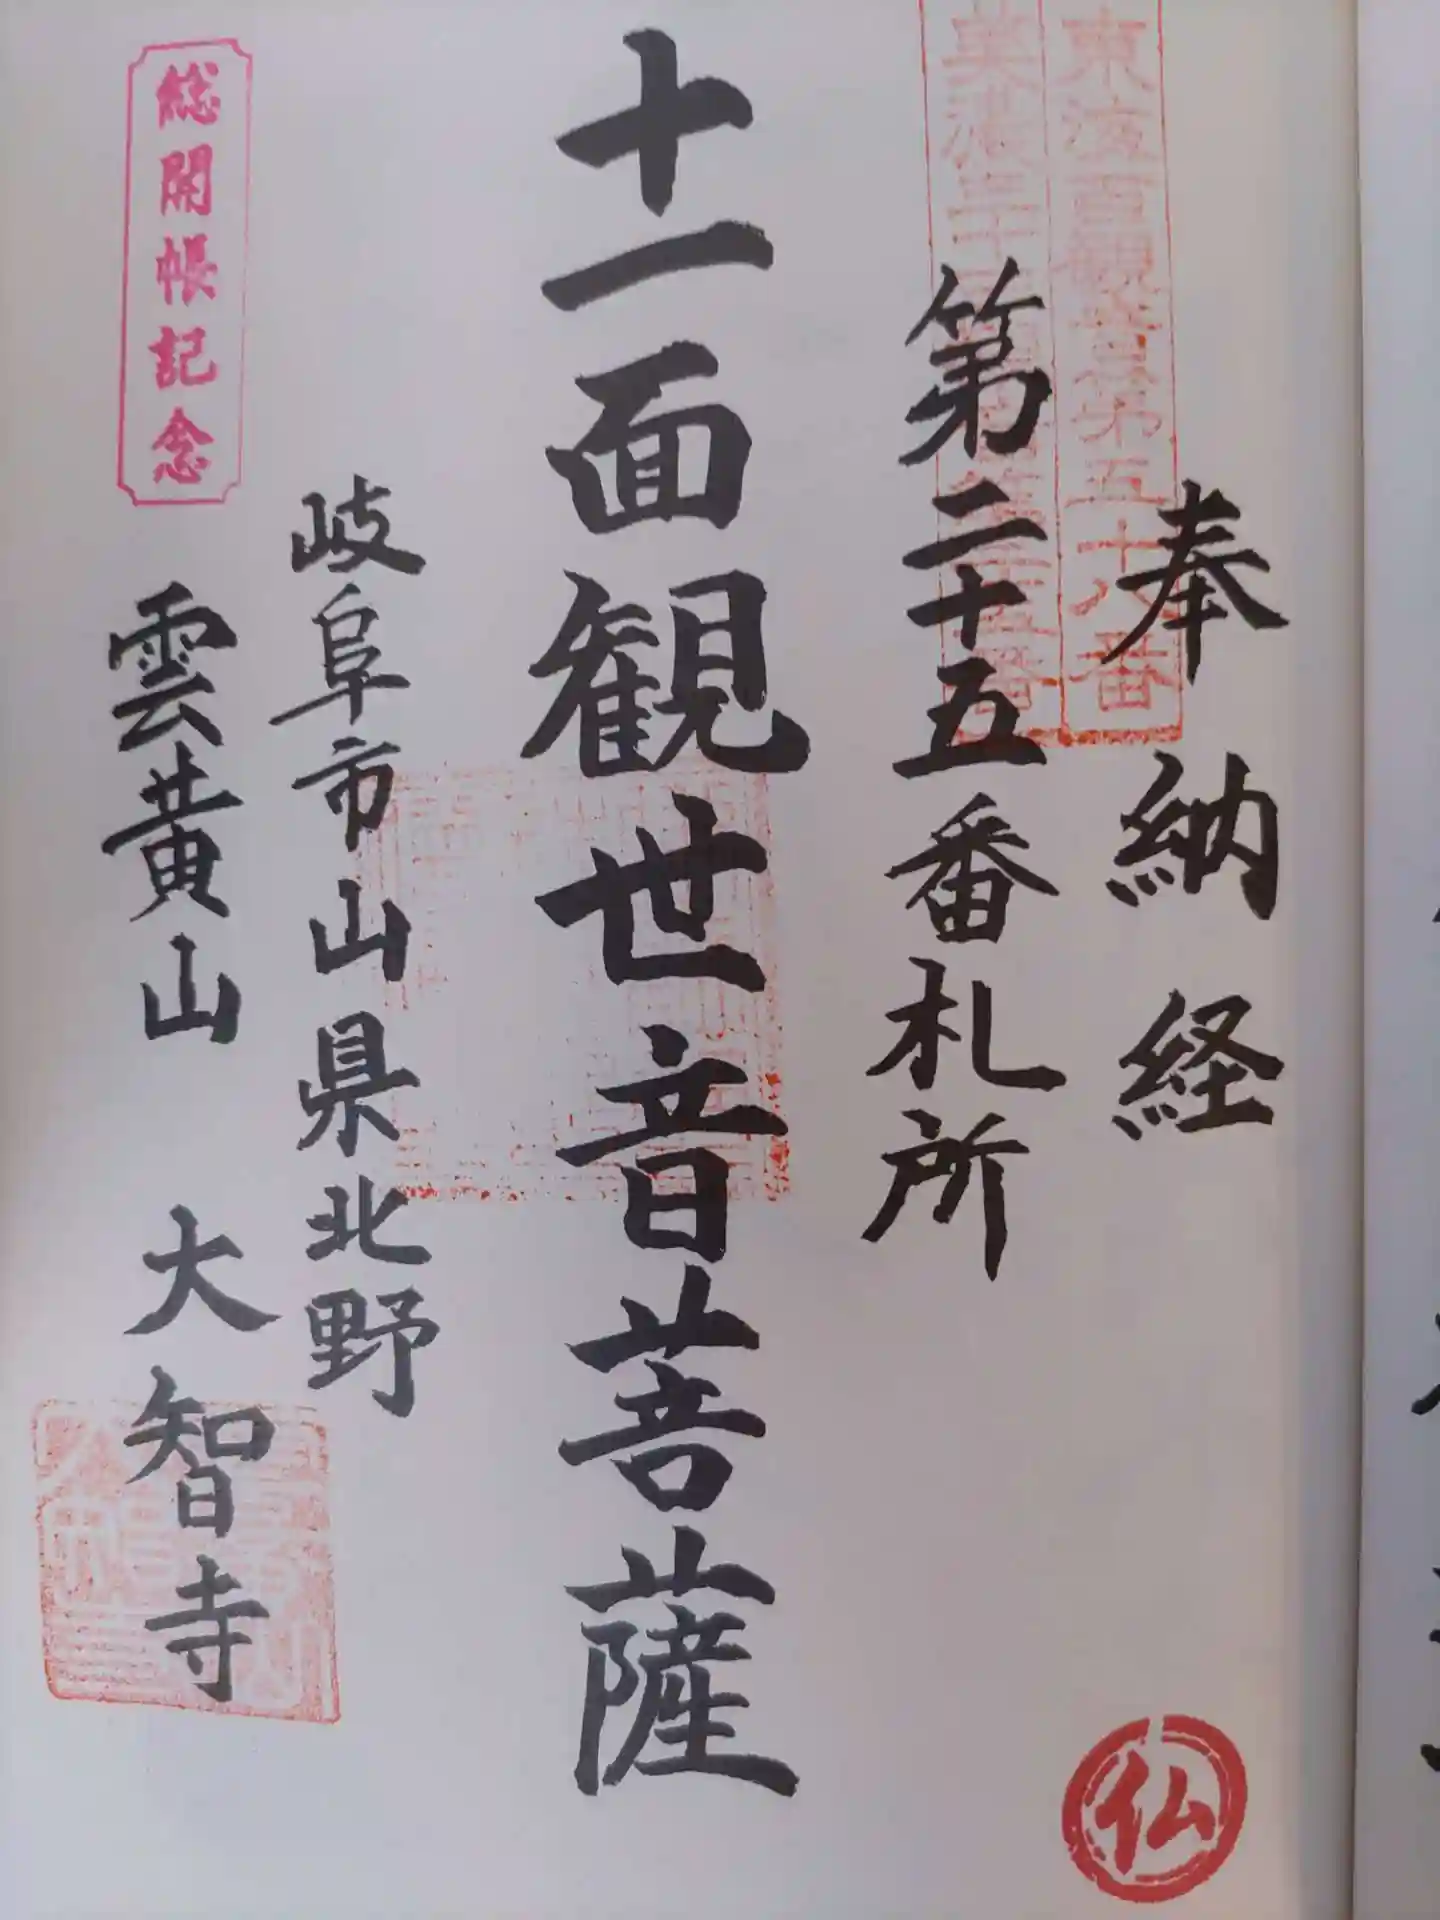 奉納経
東海百観音第五十八番
第二十五番札所
十一面観世音菩薩
岐阜市山県北野
雲黄山 大智寺
総開帳記念
仏